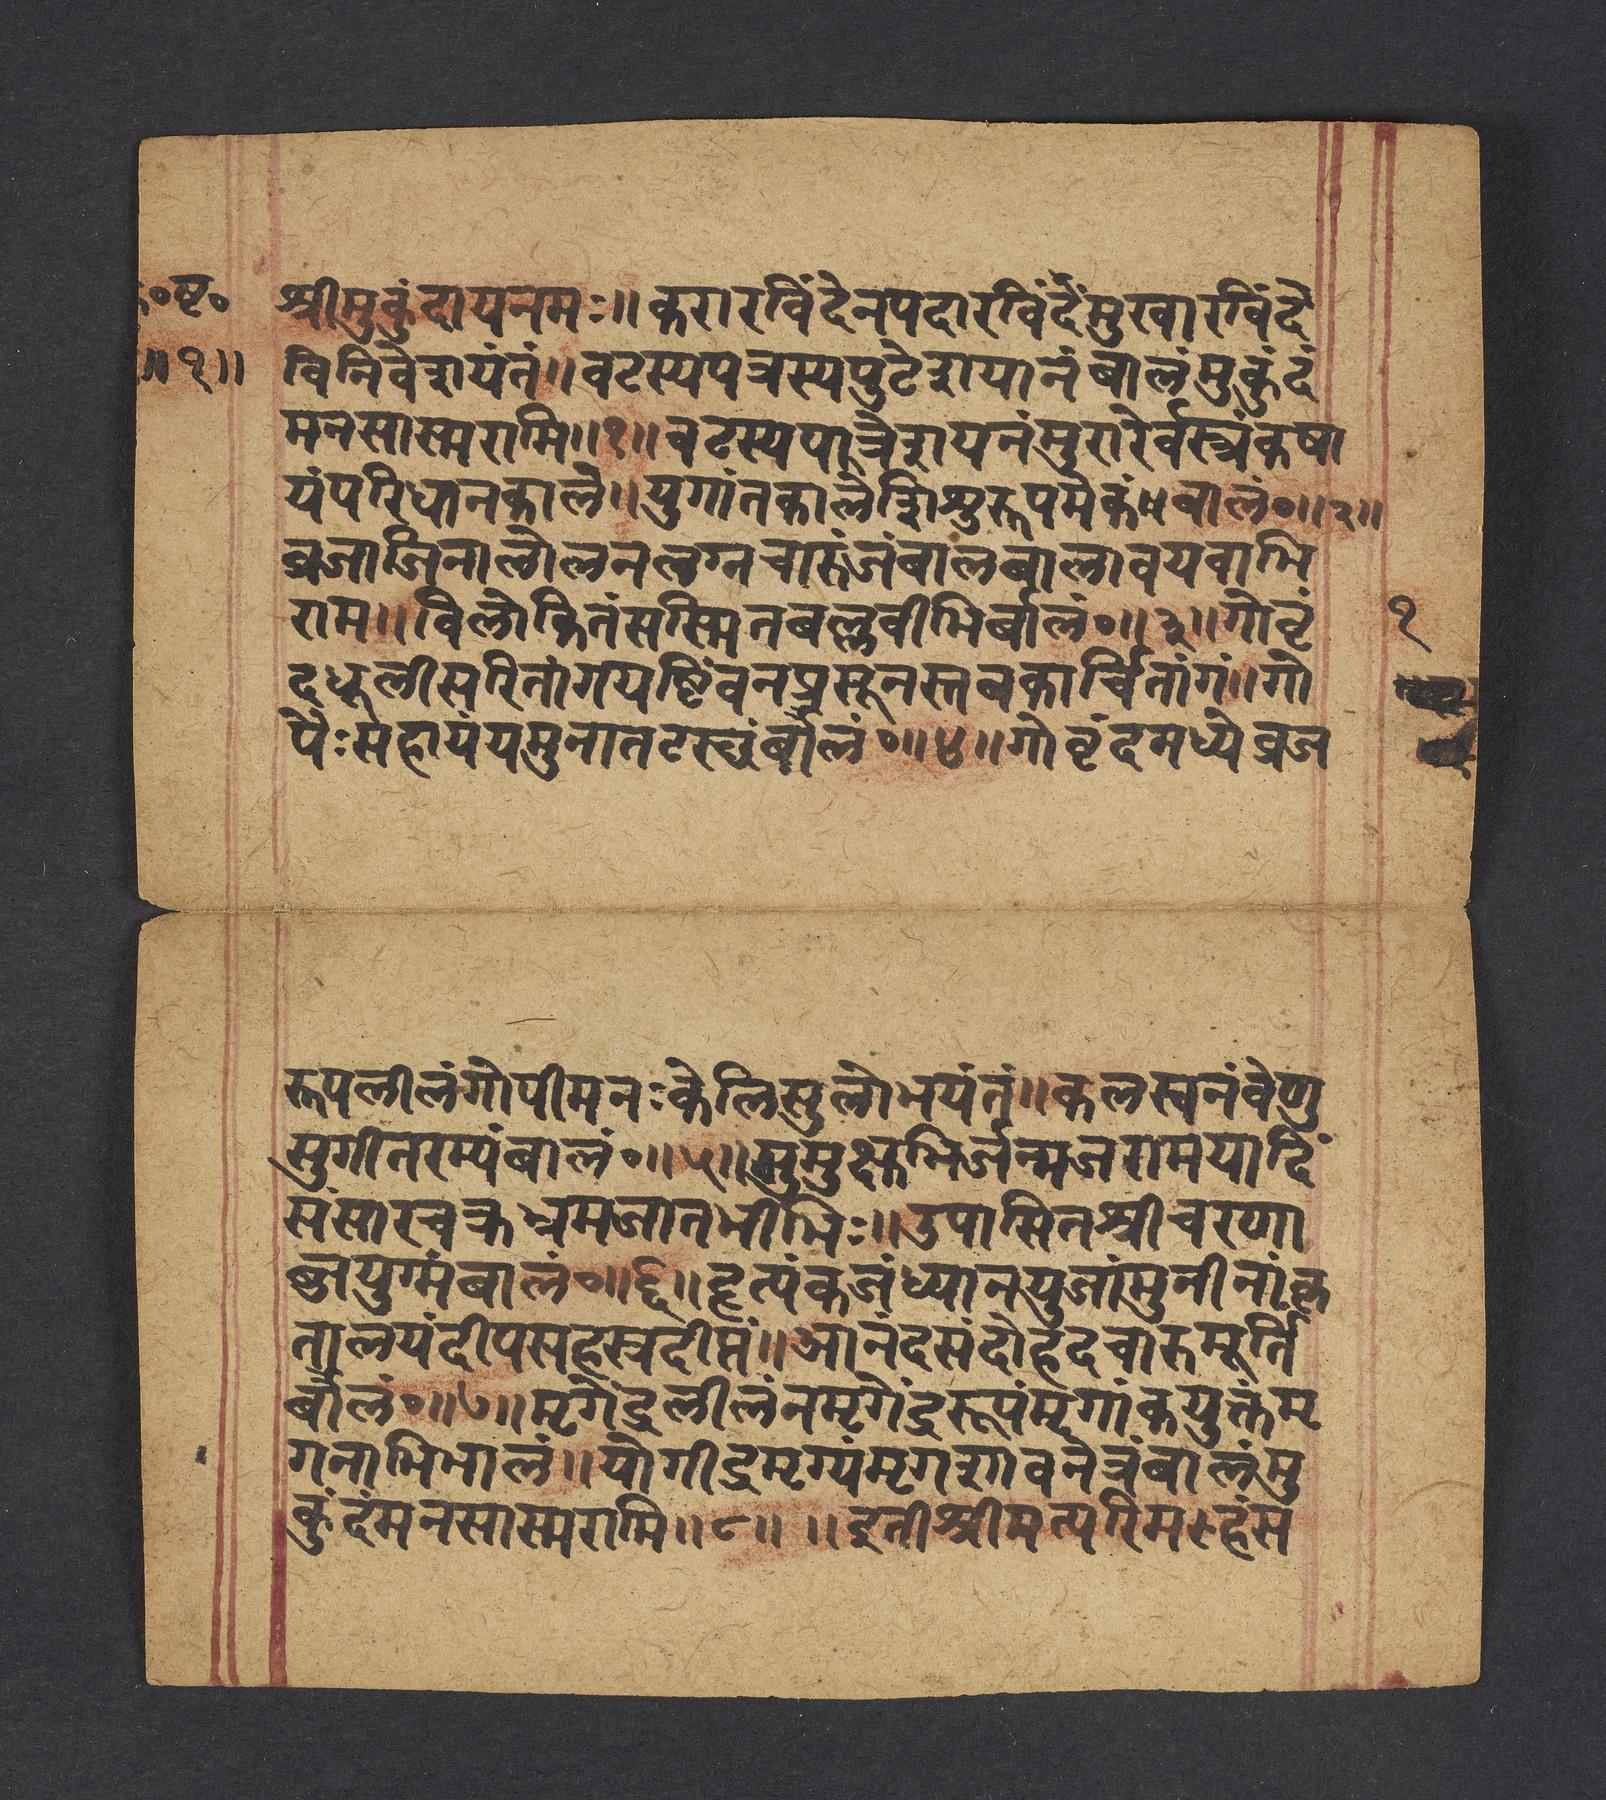 ॰ष्ट॰
॥१॥
श्रीमुकुंदायनमः॥करारविंदेनपदारविंदंमुखारविंदे
विनिवेशयंतं॥वटस्यपत्रस्यपुटेशयानंबालंमुकुंदं
मनसास्मरामि॥१॥वटस्यपात्रेशयनंमुरारेर्वस्त्रंकषा
यंपरिधानकाले॥युगांतकालेशिशुरूपमेकं॥बालं॰॥२॥
व्रजाजिनालोलनलग्नचारुंजंबालबालावयवाभि
राम॥विलोकितंसस्मितबल्लवीभिर्बालं॰॥३॥गोवृं
दधूलीसरितांगयष्टिंवनप्रसूनस्तबकार्चितांगं॥गो
पैःसहायंयमुनातटस्छंर्बालं॰॥४॥गोवृंदमध्येव्रज
१
रूपलीलंगोपीमनःकेलिसुलोभयंतं॥कलस्वनंवेणु
सुगीतरम्यंबालं॰॥५॥मुमुक्षुभिर्जन्मजरामयादिं
संसारचक्रभ्रमजातभीभिः॥उपासितश्रीचरणा
ब्जयुग्मंबालं॰॥६॥हृत्पंकजंध्यानयुजांमुनीनांकृ
तालयंदीपसहस्त्रदीप्तं॥आनंदसंदोहदचारुमूर्तिं
र्बालं॰॥७॥मृगेंद्रलीलंनमृगेंद्ररूपंमृगांकयुक्तंमृ
गनाभिभालं॥योगींद्रमृग्यंमृगशावनेत्रंबालंमु
कुंदंमनसास्मरामि॥८॥ ॥इतीश्रीमत्परिमहंस